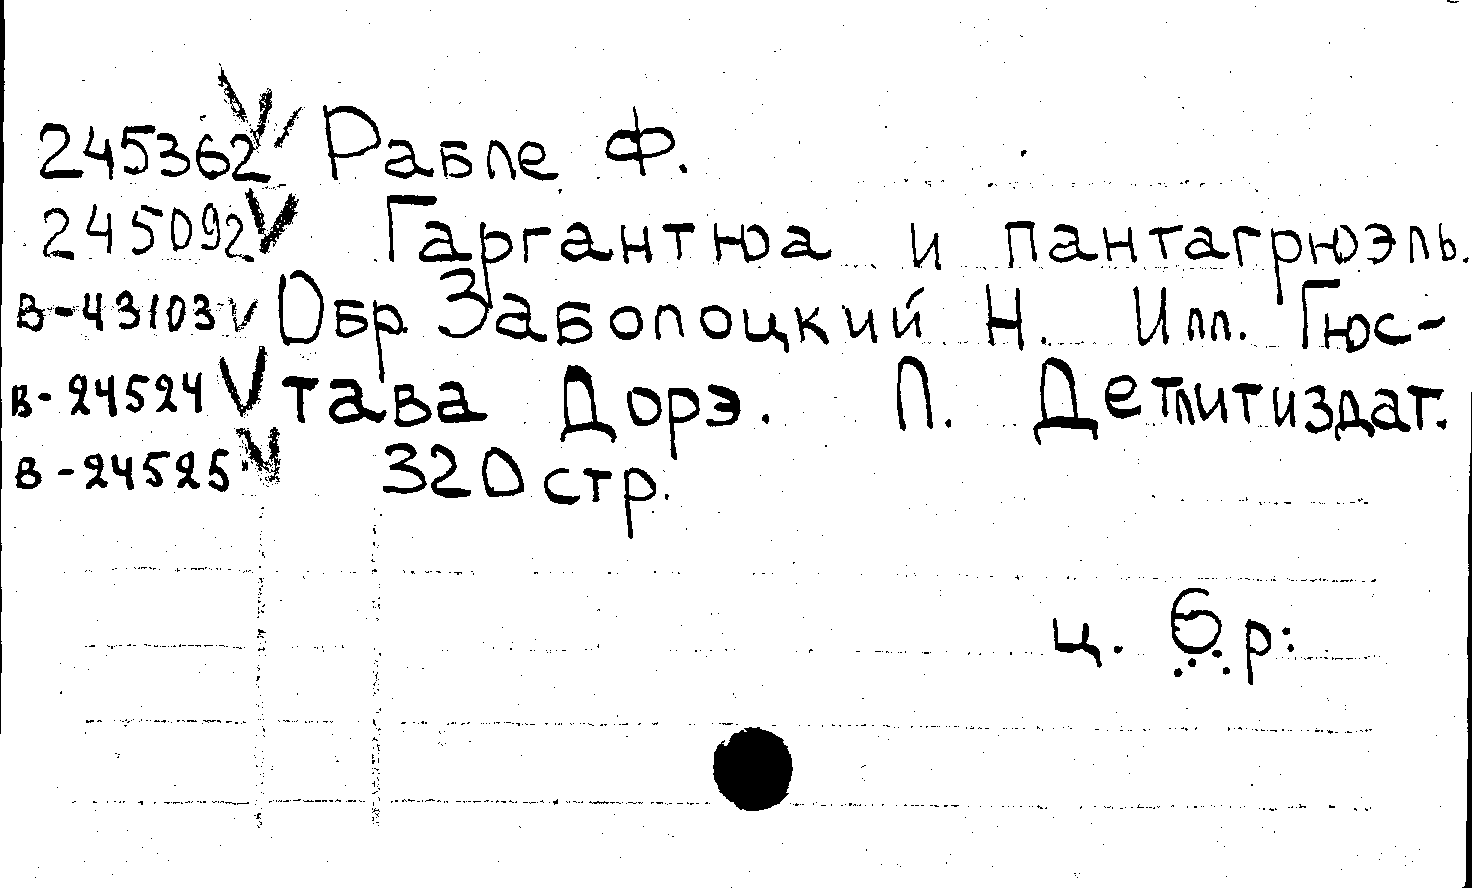 245362 Рабле Ф.
245092 Гаргантюа и пантагрюэль.
В-43103 Обр. Заболоцкий Н. Илл. Гюс-
В-24524 тава Дорэ. Л. Детлитиздат.
В-24525 320 стр.
ц. 6 р.